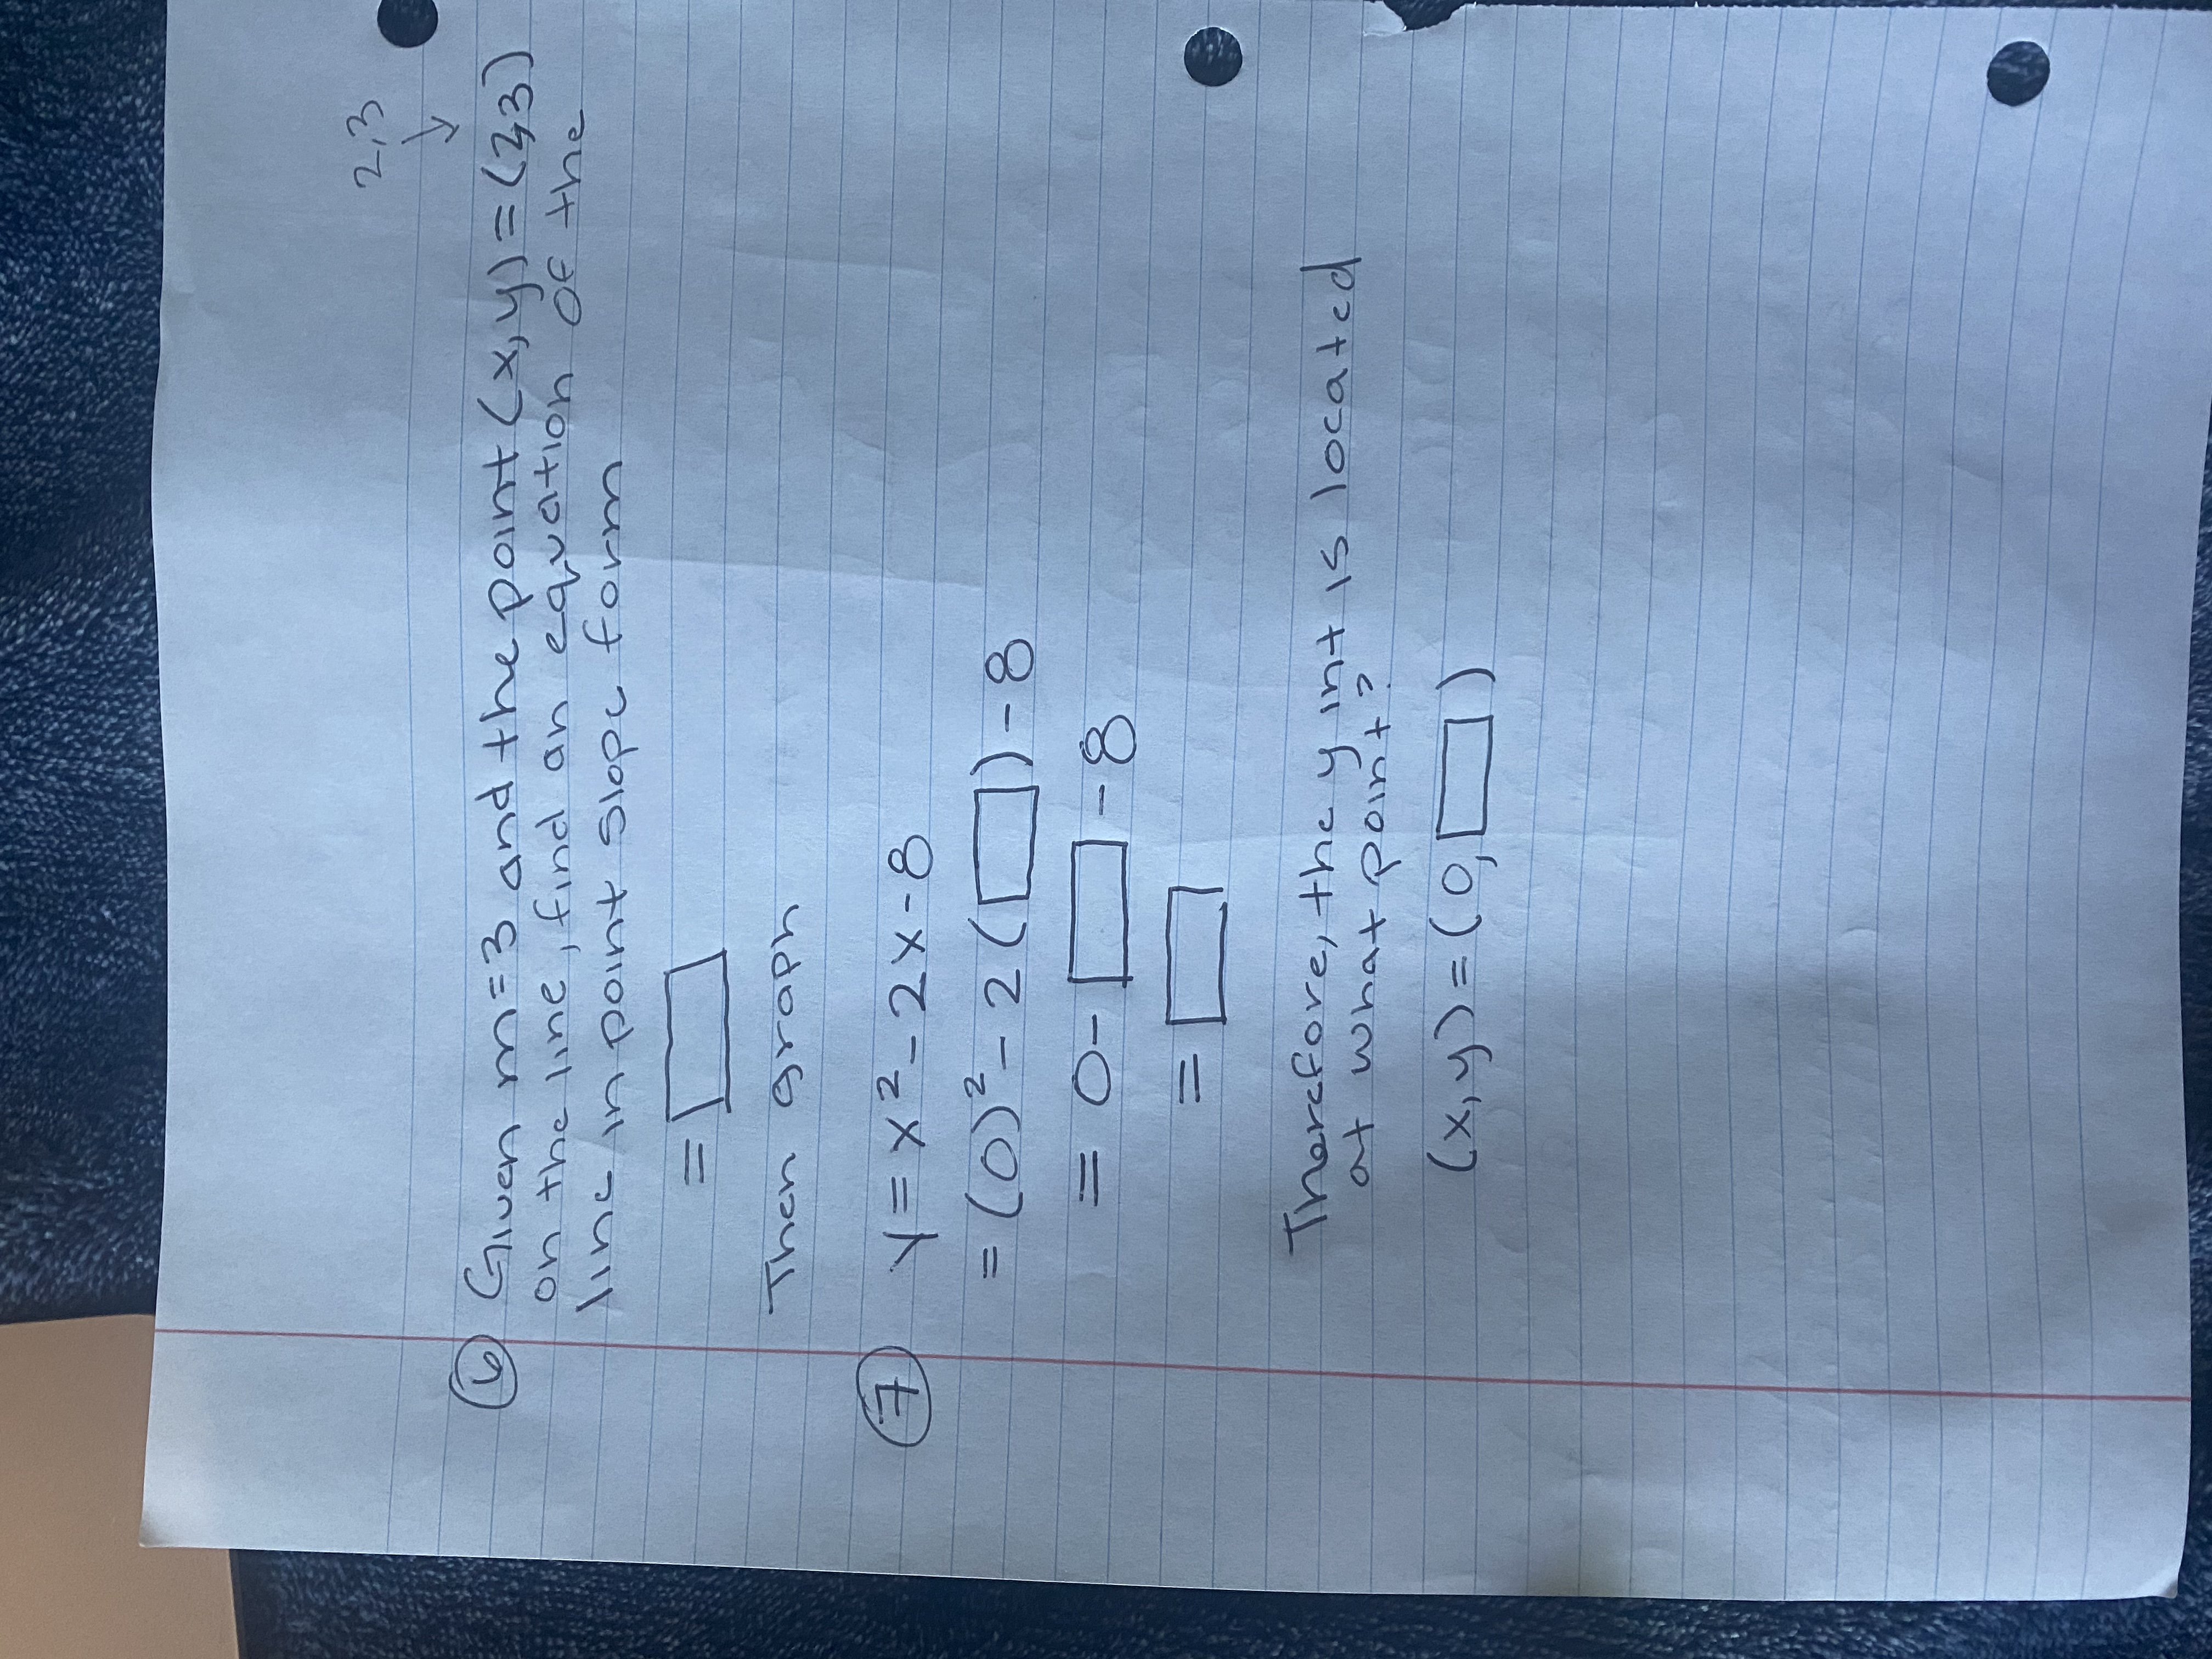 2,3
↓
6 Given m=3 and the point (x,y)=(2,3)
on the line, find an equation of the
line in point slope form
=
Then graph
7 y=x²-2x-8
=(0)²-2( )-8
=0- -8
=
Therefore, the y int is located
at what point?
(x,y)=(0, )